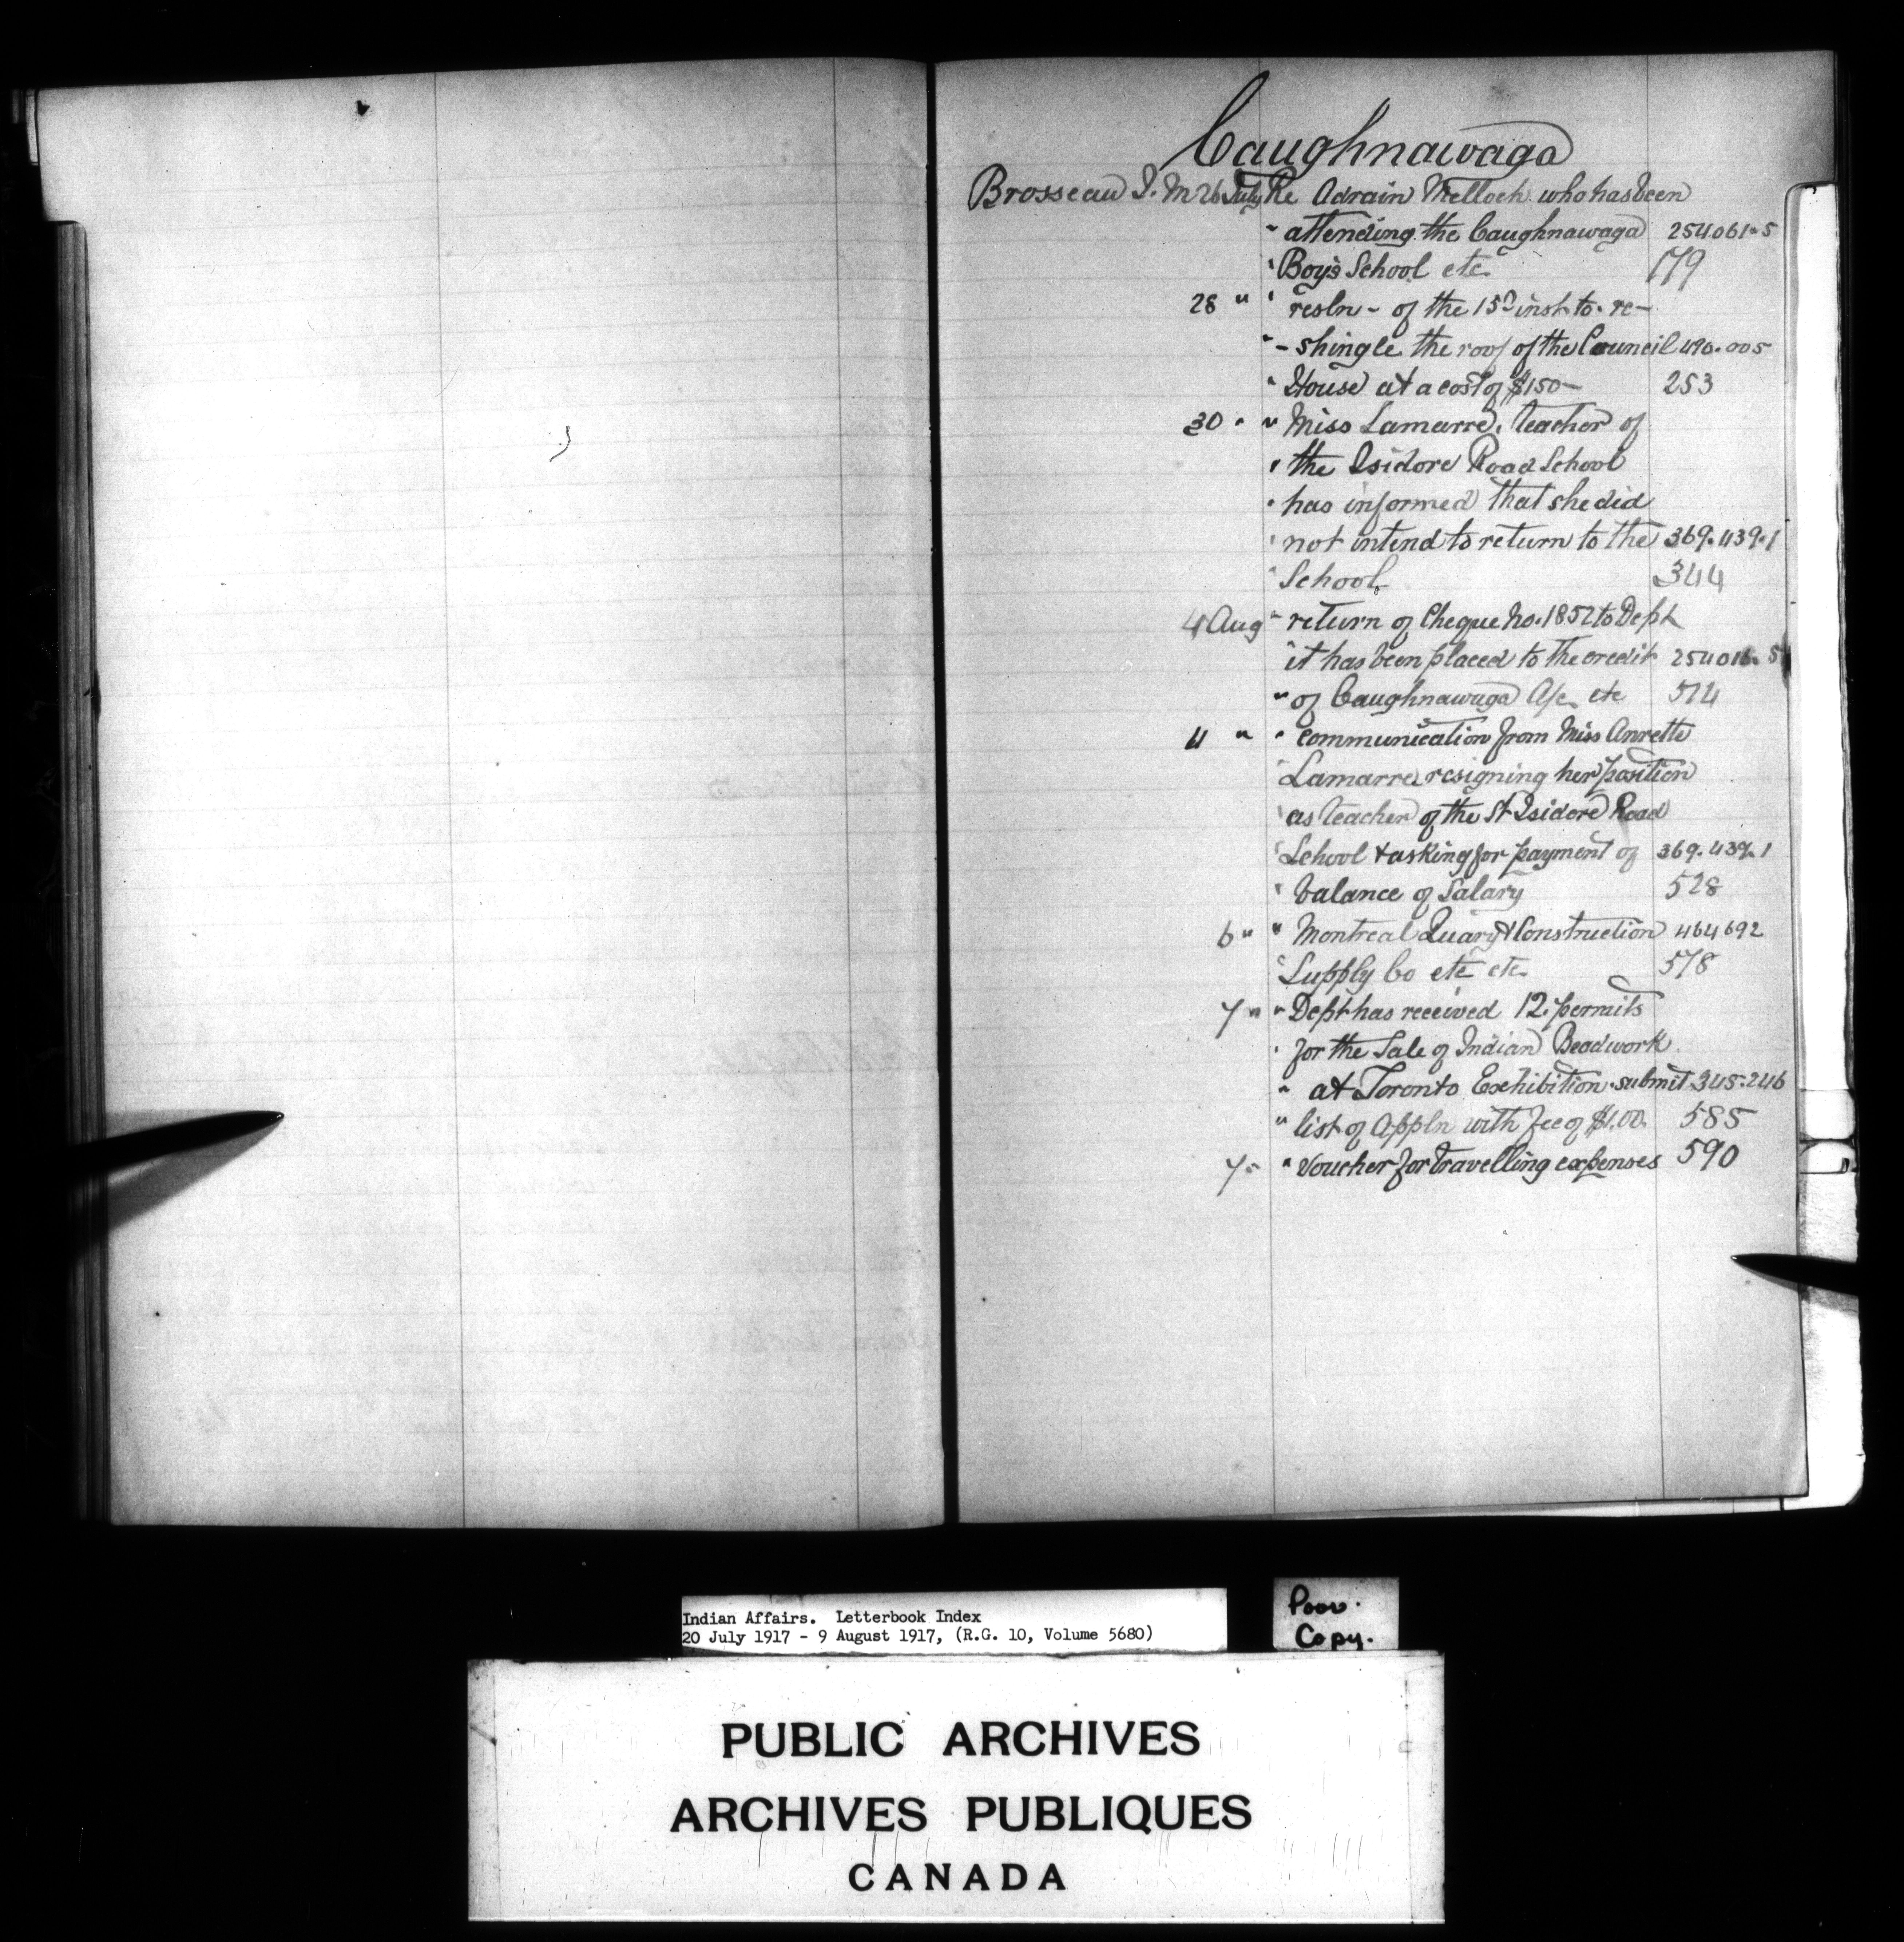 Caughnawaga
Brosseau J. M 26 July Re Adrain Melloch who has been
" attending the Caughnawaga 254061-5
" Boy's School etc. 179
28 " " resln - of the 15th inst to re-
" - shingle the roof of the Council 490.005
" House at a cost of $150- 253
30 " " Miss Lamarre, teacher of
" the Isidore Road School
" has informed that she did
" not intend to return to the 369.439.1
" School. 344
4 Aug " return of Cheque No. 1852 to Dept
" it has been placed to the credit 254016.5
" of Caughnawaga A/c. etc 514
4 " " communication from Miss Annette
" Lamarre resigning her position
" as teacher of the St Isidore Road
" School & asking for payment of 369.439.1
" balance of Salary 528
6 " " Montreal Quary & Construction 464692
" Supply Co etc etc. 578
7 " " Dept has received 12. permits
" for the Sale of Indian Beadwork
" at Toronto Exhibition. submit 345.246
" list of Appln with fee of $1.00. 585
7 " " Voucher for travelling expenses 590
Indian Affairs. Letterbook Index
20 July 1917 - 9 August 1917, (R.G. 10, Volume 5680)
Poor.
Copy.
PUBLIC ARCHIVES
ARCHIVES PUBLIQUES
CANADA